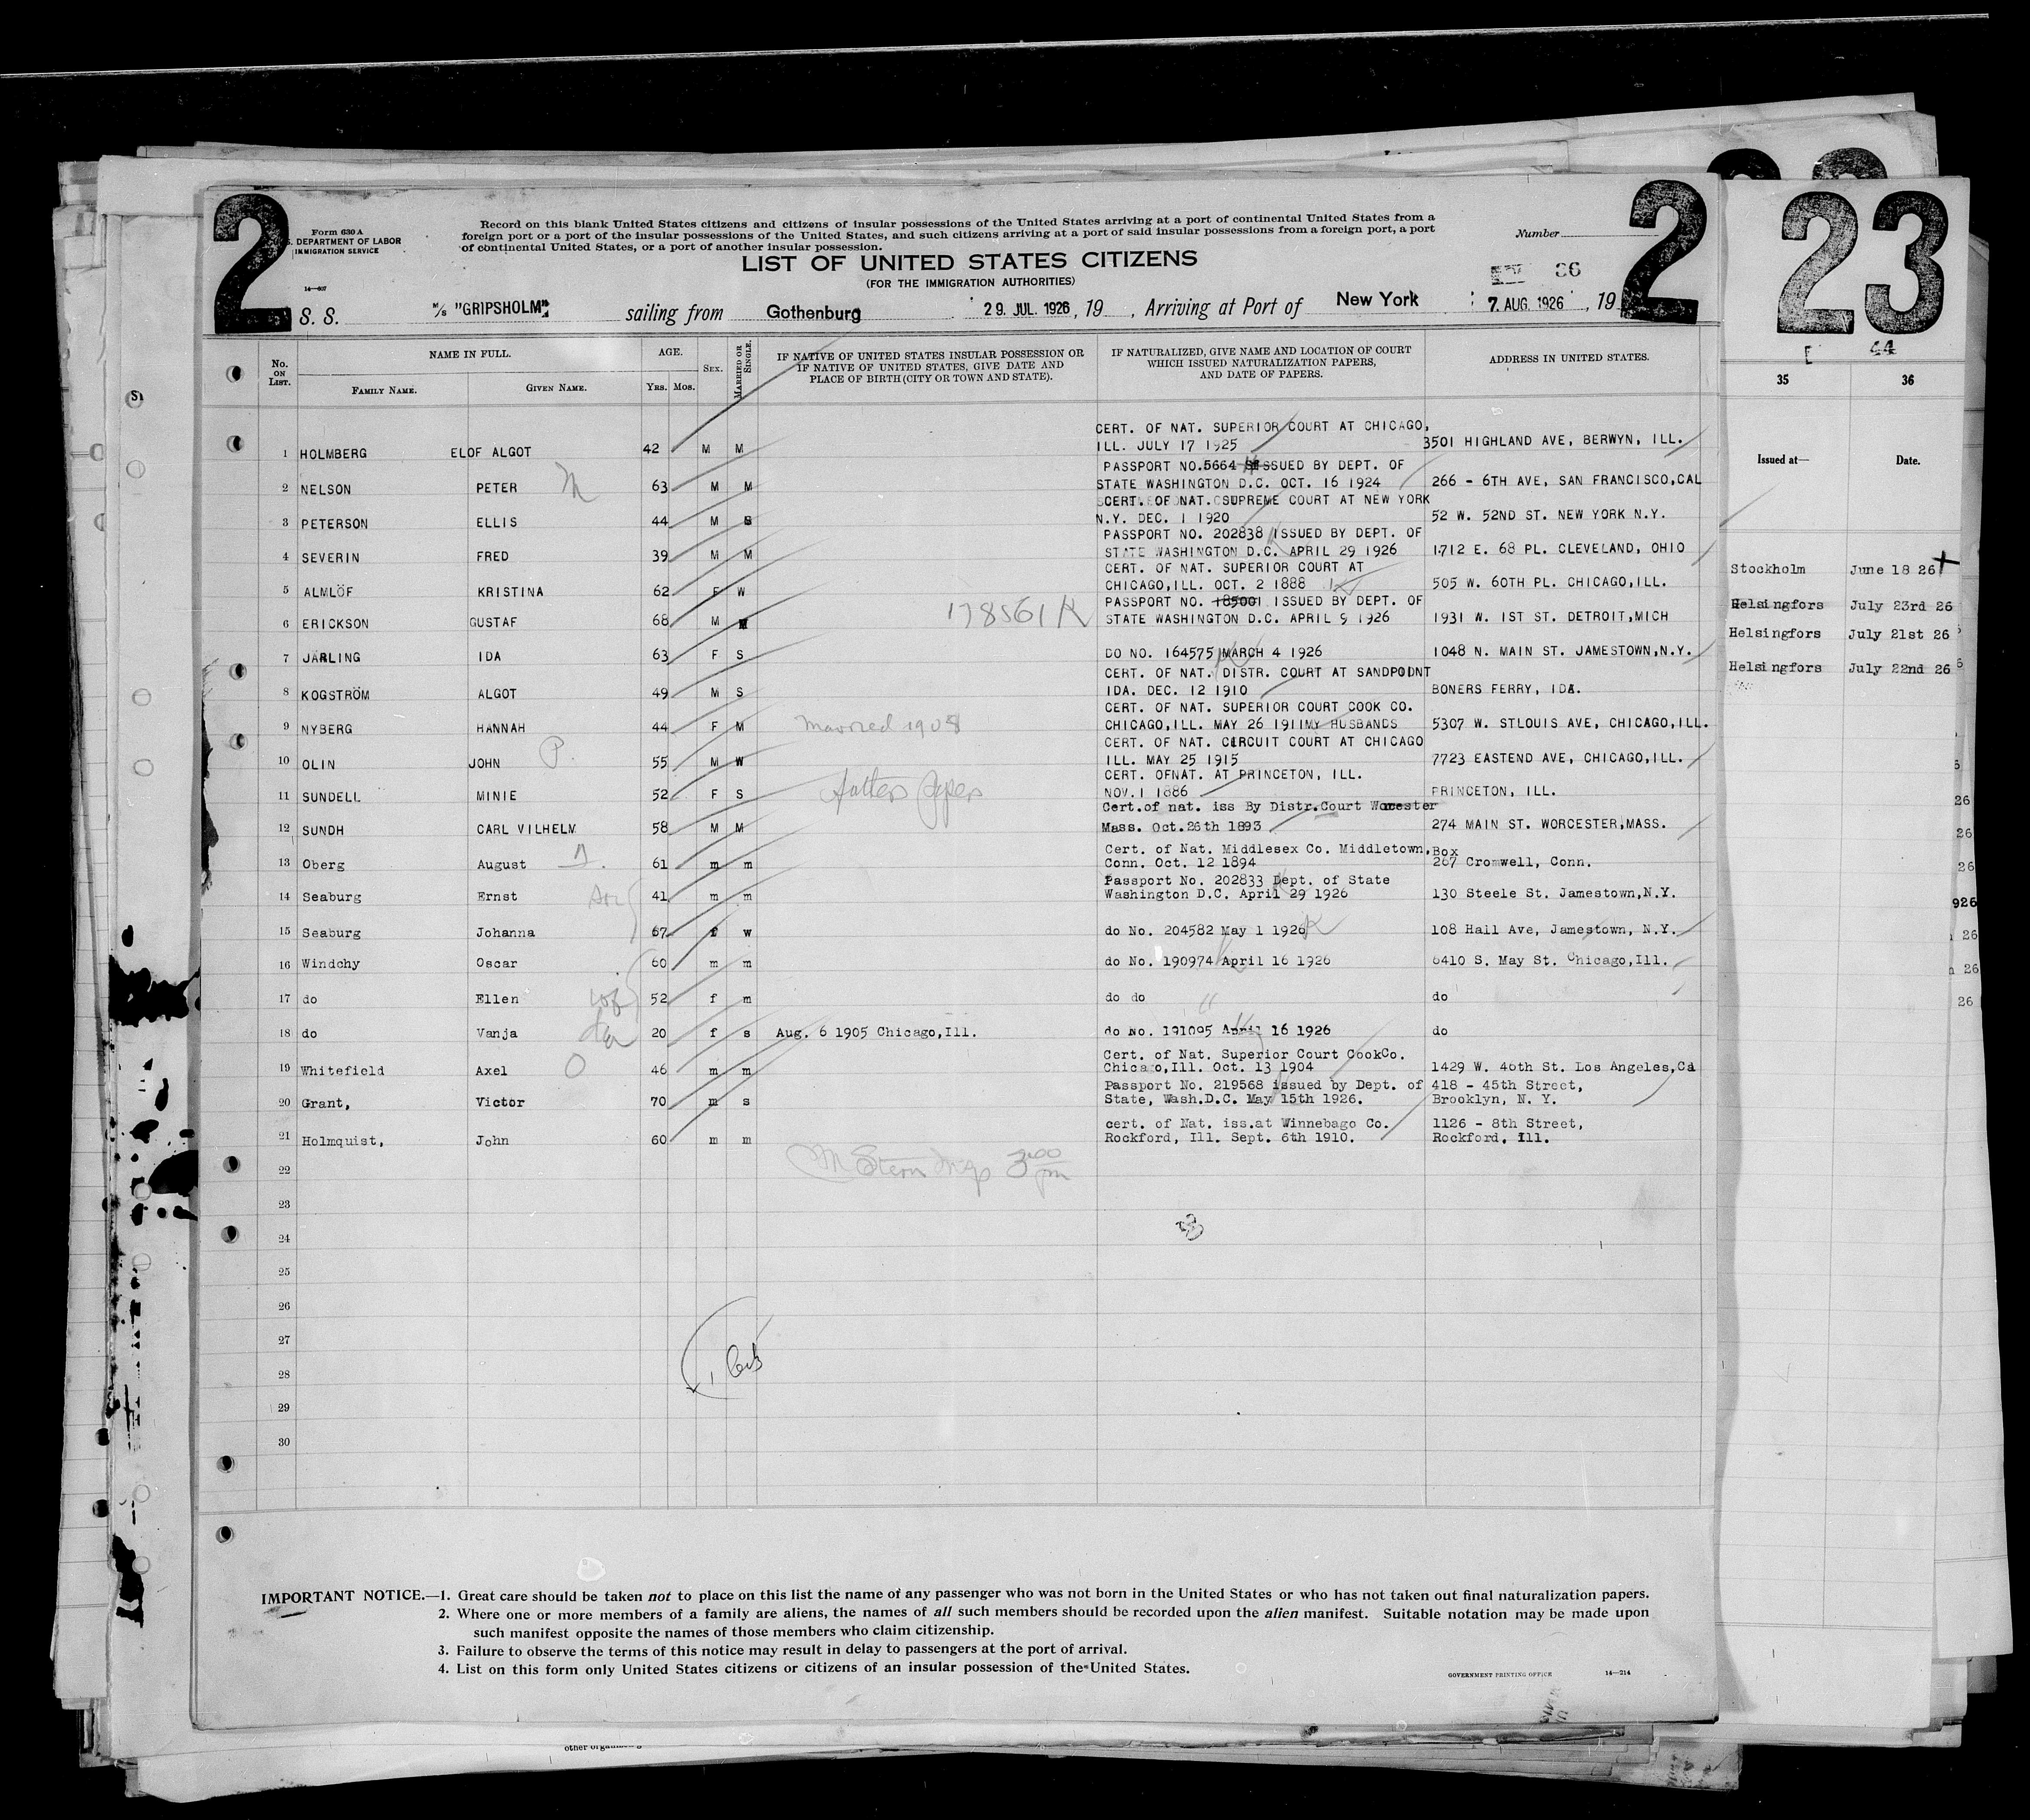 2
2
23
Form 630 A
U.S. DEPARTMENT OF LABOR
IMMIGRATION SERVICE
14—607
Record on this blank United States citizens and citizens of insular possessions of the United States arriving at a port of continental United States from a
foreign port or a port of the insular possessions of the United States, and such citizens arriving at a port of said insular possessions from a foreign port, a port
of continental United States, or a port of another insular possession.
Number
LIST OF UNITED STATES CITIZENS
(FOR THE IMMIGRATION AUTHORITIES)
S. S. M/S "GRIPSHOLM" sailing from Gothenburg 29. JUL. 1926, 19 , Arriving at Port of New York 7. AUG. 1926 , 19
44
No. ON LIST.
NAME IN FULL.
FAMILY NAME.
GIVEN NAME.
AGE.
YRS.
MOS.
SEX.
MARRIED OR SINGLE.
IF NATIVE OF UNITED STATES INSULAR POSSESSION OR
IF NATIVE OF UNITED STATES, GIVE DATE AND
PLACE OF BIRTH (CITY OR TOWN AND STATE).
IF NATURALIZED, GIVE NAME AND LOCATION OF COURT
WHICH ISSUED NATURALIZATION PAPERS,
AND DATE OF PAPERS.
ADDRESS IN UNITED STATES.
35
36
Issued at—
Date.
CERT. OF NAT. SUPERIOR COURT AT CHICAGO,
1 HOLMBERG ELOF ALGOT 42 M M ILL. JULY 17 1925 3501 HIGHLAND AVE, BERWYN, ILL.
PASSPORT NO. 5664 ISSUED BY DEPT. OF
2 NELSON PETER M 63 M M STATE WASHINGTON D.C. OCT. 16 1924 266 - 6TH AVE, SAN FRANCISCO,CAL
CERT. OF NAT. SUPREME COURT AT NEW YORK
3 PETERSON ELLIS 44 M S N.Y. DEC. 1 1920 52 W. 52ND ST. NEW YORK N.Y.
PASSPORT NO. 202838 ISSUED BY DEPT. OF
4 SEVERIN FRED 39 M M STATE WASHINGTON D.C. APRIL 29 1926 1712 E. 68 PL. CLEVELAND, OHIO
CERT. OF NAT. SUPERIOR COURT AT
5 ALMLÖF KRISTINA 62 F W CHICAGO,ILL. OCT. 2 1888 505 W. 60TH PL. CHICAGO,ILL.
PASSPORT NO. 185001 ISSUED BY DEPT. OF
6 ERICKSON GUSTAF 68 M M 178561 K STATE WASHINGTON D.C. APRIL 9 1926 1931 W. 1ST ST. DETROIT,MICH
7 JARLING IDA 63 F S DO NO. 164575 MARCH 4 1926 1048 N. MAIN ST. JAMESTOWN,N.Y.
CERT. OF NAT. DISTR. COURT AT SANDPOINT
8 KOGSTRÖM ALGOT 49 M S IDA. DEC. 12 1910 BONERS FERRY, IDA.
CERT. OF NAT. SUPERIOR COURT COOK CO.
9 NYBERG HANNAH 44 F M Married 1908 CHICAGO,ILL. MAY 26 1911MY HUSBANDS 5307 W. STLOUIS AVE, CHICAGO,ILL.
CERT. OF NAT. CIRCUIT COURT AT CHICAGO
10 OLIN JOHN P. 55 M W ILL. MAY 25 1915 7723 EASTEND AVE, CHICAGO,ILL.
CERT. OFNAT. AT PRINCETON, ILL.
11 SUNDELL MINIE 52 F S fathers papers NOV.1 1886 PRINCETON, ILL.
Cert.of nat. iss By Distr.Court Worester
12 SUNDH CARL VILHELM 58 M M Mass. Oct.26th 1893 274 MAIN ST. WORCESTER,MASS.
Cert. of Nat. Middlesex Co. Middletown, Box
13 Oberg August 61 m m Conn. Oct. 12 1894 267 Cromwell, Conn.
Passport No. 202833 Dept. of State
14 Seaburg Ernst 41 m m Washington D.C. April 29 1926 130 Steele St. Jamestown,N.Y.
15 Seaburg Johanna 67 f w do No. 204582 May 1 1926 108 Hall Ave, Jamestown, N.Y.
16 Windchy Oscar 60 m m do No. 190974 April 16 1926 6410 S. May St. Chicago,Ill.
17 do Ellen wf 52 f m do do " do
18 do Vanja da 20 f s Aug. 6 1905 Chicago,Ill. do No. 191095 April 16 1926 do
Cert. of Nat. Superior Court CookCo.
19 Whitefield Axel O 46 m m Chicago,Ill. Oct. 13 1904 1429 W. 46th St. Los Angeles,Ca
Passport No. 219568 issued by Dept. of 418 - 45th Street,
20 Grant, Victor 70 m s State, Wash.D.C. May 15th 1926. Brooklyn, N. Y.
cert. of Nat. iss.at Winnebago Co. 1126 - 8th Street,
21 Holmquist, John 60 m m Rockford, Ill. Sept. 6th 1910. Rockford, Ill.
22
23
24
25
26
27
28
29
30
Stockholm June 18 26
Helsingfors July 23rd 26
Helsingfors July 21st 26
Helsingfors July 22nd 26
26
26
26
926
26
26
26
IMPORTANT NOTICE.—1. Great care should be taken not to place on this list the name of any passenger who was not born in the United States or who has not taken out final naturalization papers.
2. Where one or more members of a family are aliens, the names of all such members should be recorded upon the alien manifest. Suitable notation may be made upon
such manifest opposite the names of those members who claim citizenship.
3. Failure to observe the terms of this notice may result in delay to passengers at the port of arrival.
4. List on this form only United States citizens or citizens of an insular possession of the United States.
GOVERNMENT PRINTING OFFICE 14—214